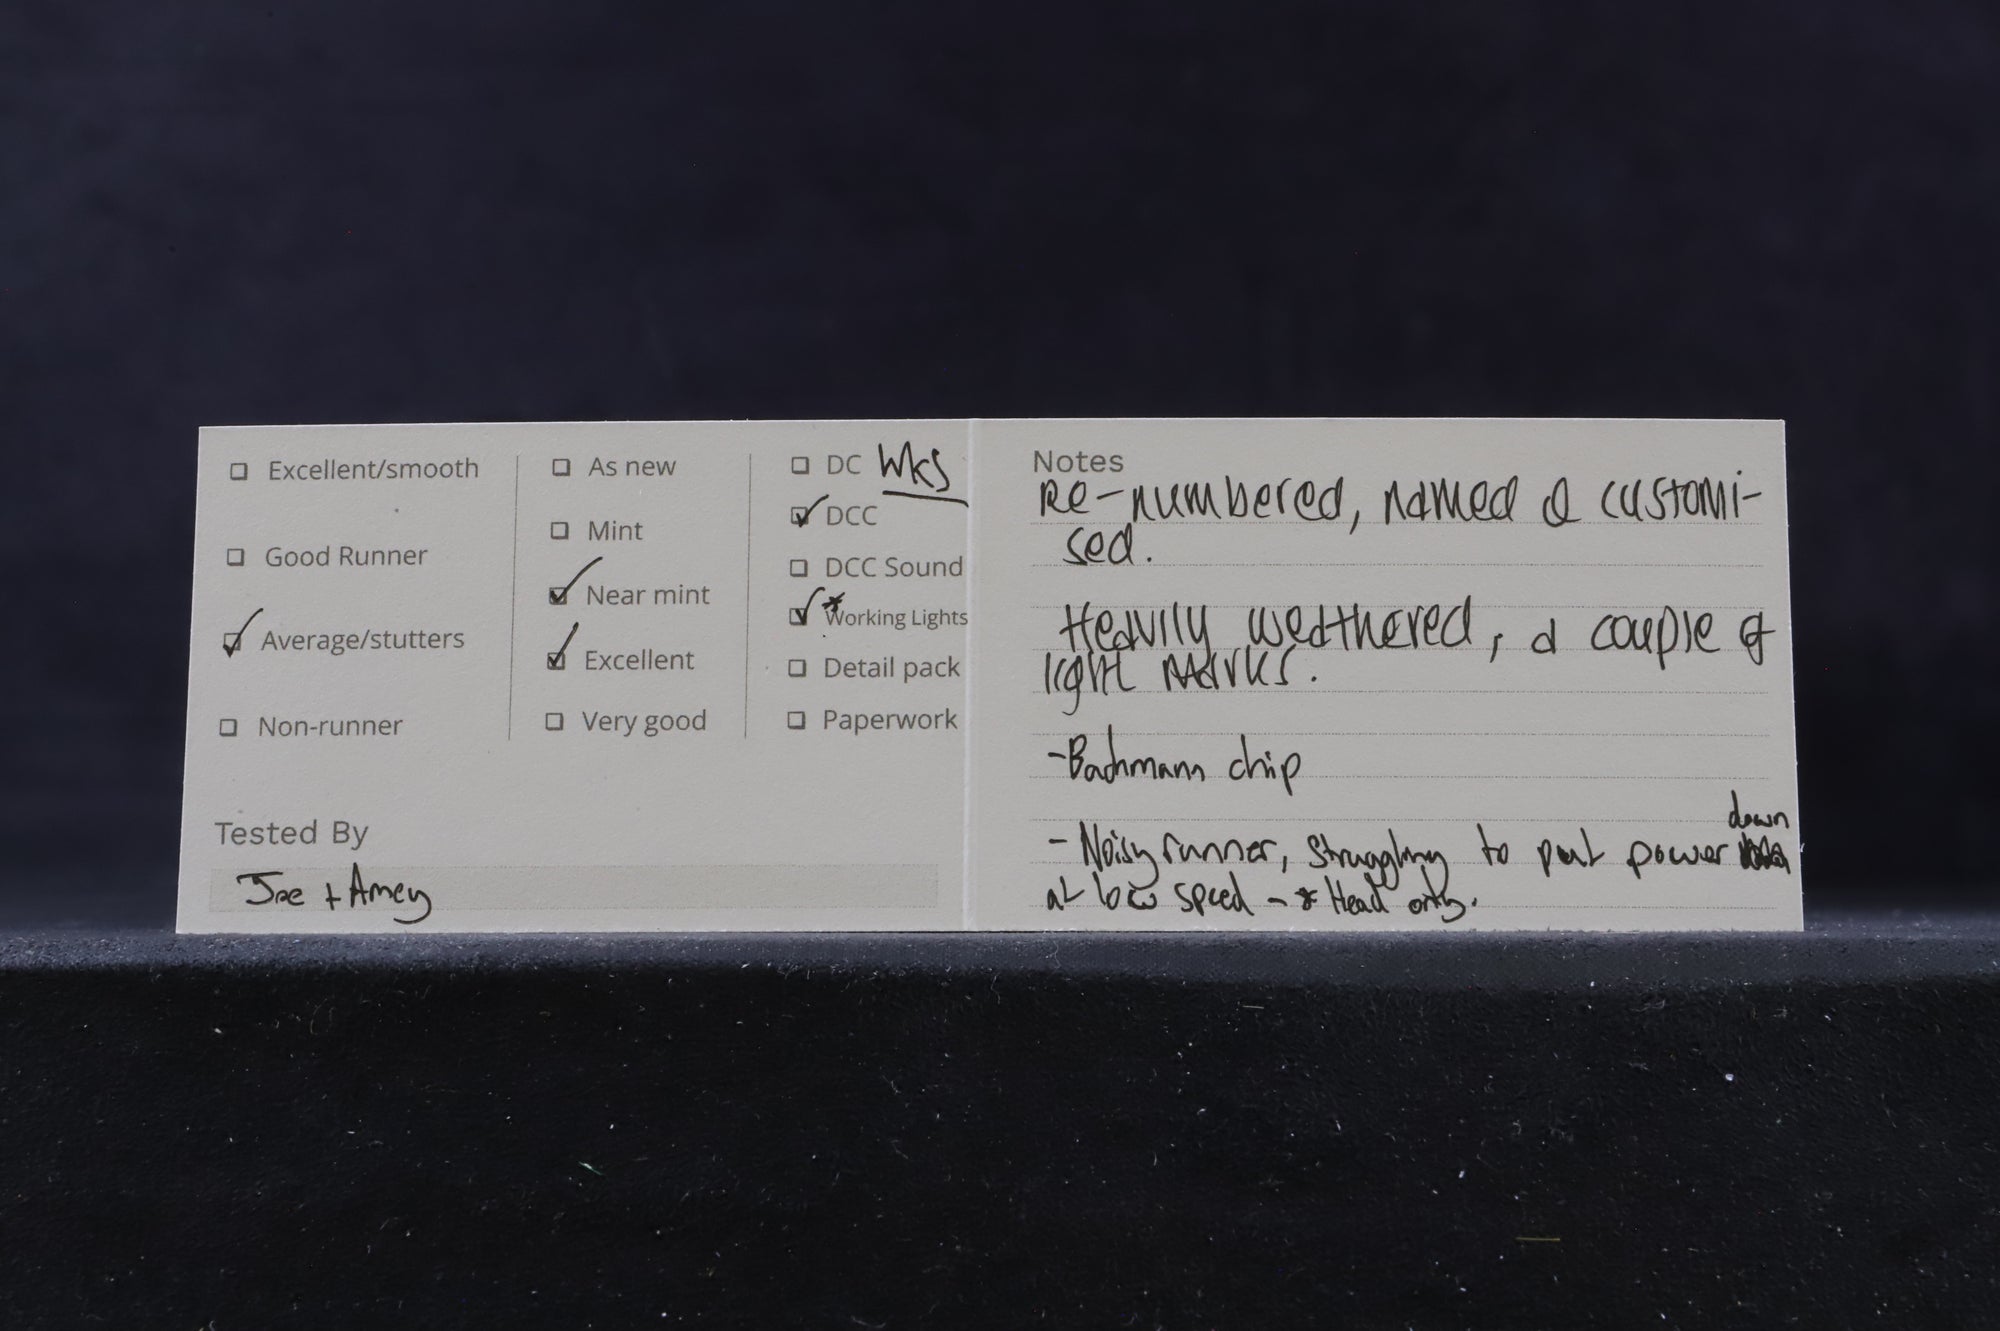 ☐ Excellent/smooth
☐ Good Runner
☑ Average/stutters
☐ Non-runner
☐ As new
☐ Mint
☑ Near mint
☑ Excellent
☐ Very good
☐ DC Wks
☑ DCC
☐ DCC Sound
☑ * Working Lights
☐ Detail pack
☐ Paperwork
Tested By
Joe + Amey
Notes
Re-numbered, named & customi-
sed.
Heavily weathered, a couple of
light marks.
- Bachmann chip
- Noisy runner, struggling to put power down
at low speed - * Head only.